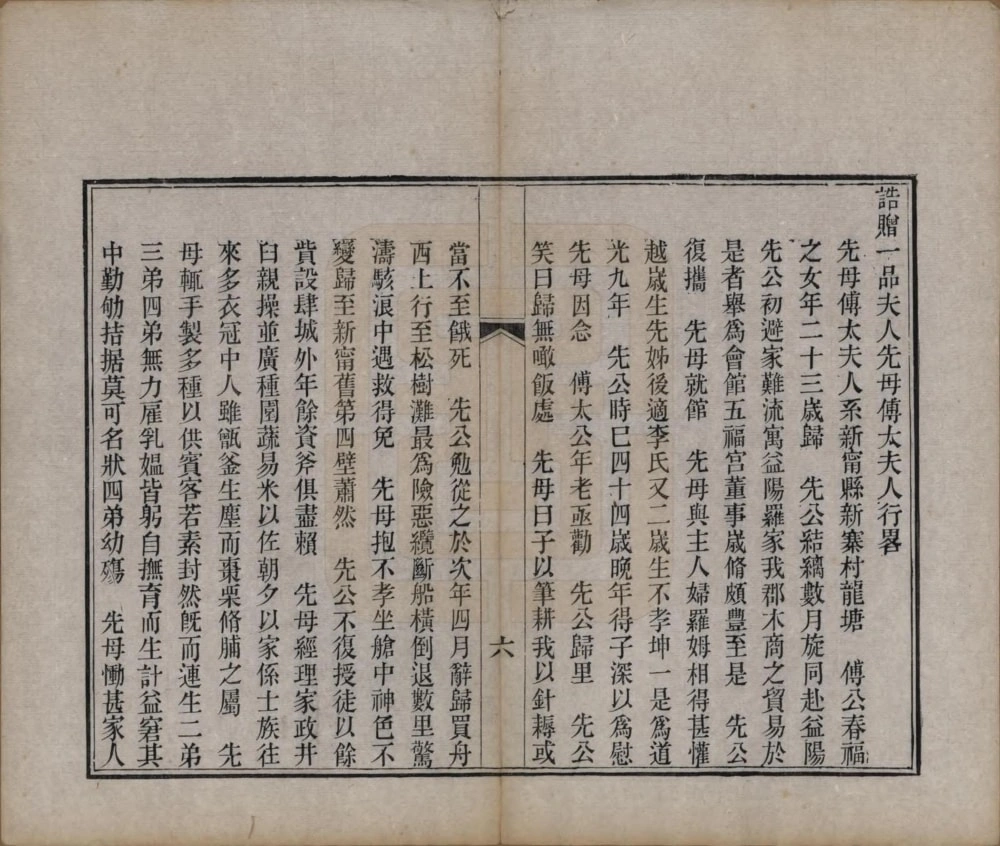 誥贈一品夫人先母傅太夫人行畧
先母傅太夫人系新甯縣新寨村龍塘　傅公春福
之女年二十三歲歸　先公結縭數月旋同赴益陽
先公初避家難流寓益陽羅家我郡木商之貿易於
是者舉爲會館五福宮董事歲脩頗豐至是　先公
復攜　先母就館　先母與主人婦羅姆相得甚懽
越歲生先姊後適李氏又二歲生不孝坤一是爲道
光九年　先公時巳四十四歲晚年得子深以爲慰
先母因念　傅太公年老亟勸　先公歸里　先公
笑曰歸無噉飯處　先母曰子以筆耕我以針耨或
六
當不至餓死　先公勉從之於次年四月辭歸買舟
西上行至松樹灘最爲險惡纜斷船橫倒退數里驚
濤駭浪中遇救得免　先母抱不孝坐艙中神色不
變歸至新甯舊第四壁蕭然　先公不復授徒以餘
貲設肆城外年餘資斧俱盡賴　先母經理家政井
臼親操並廣種園蔬易米以佐朝夕以家係士族往
來多衣冠中人雖甑釜生塵而棗栗脩脯之屬　先
母輒手製多種以供賓客若素封然旣而連生二弟
三弟四弟無力雇乳媼皆躬自撫育而生計益窘其
中勤劬拮据莫可名狀四弟幼殤　先母慟甚家人